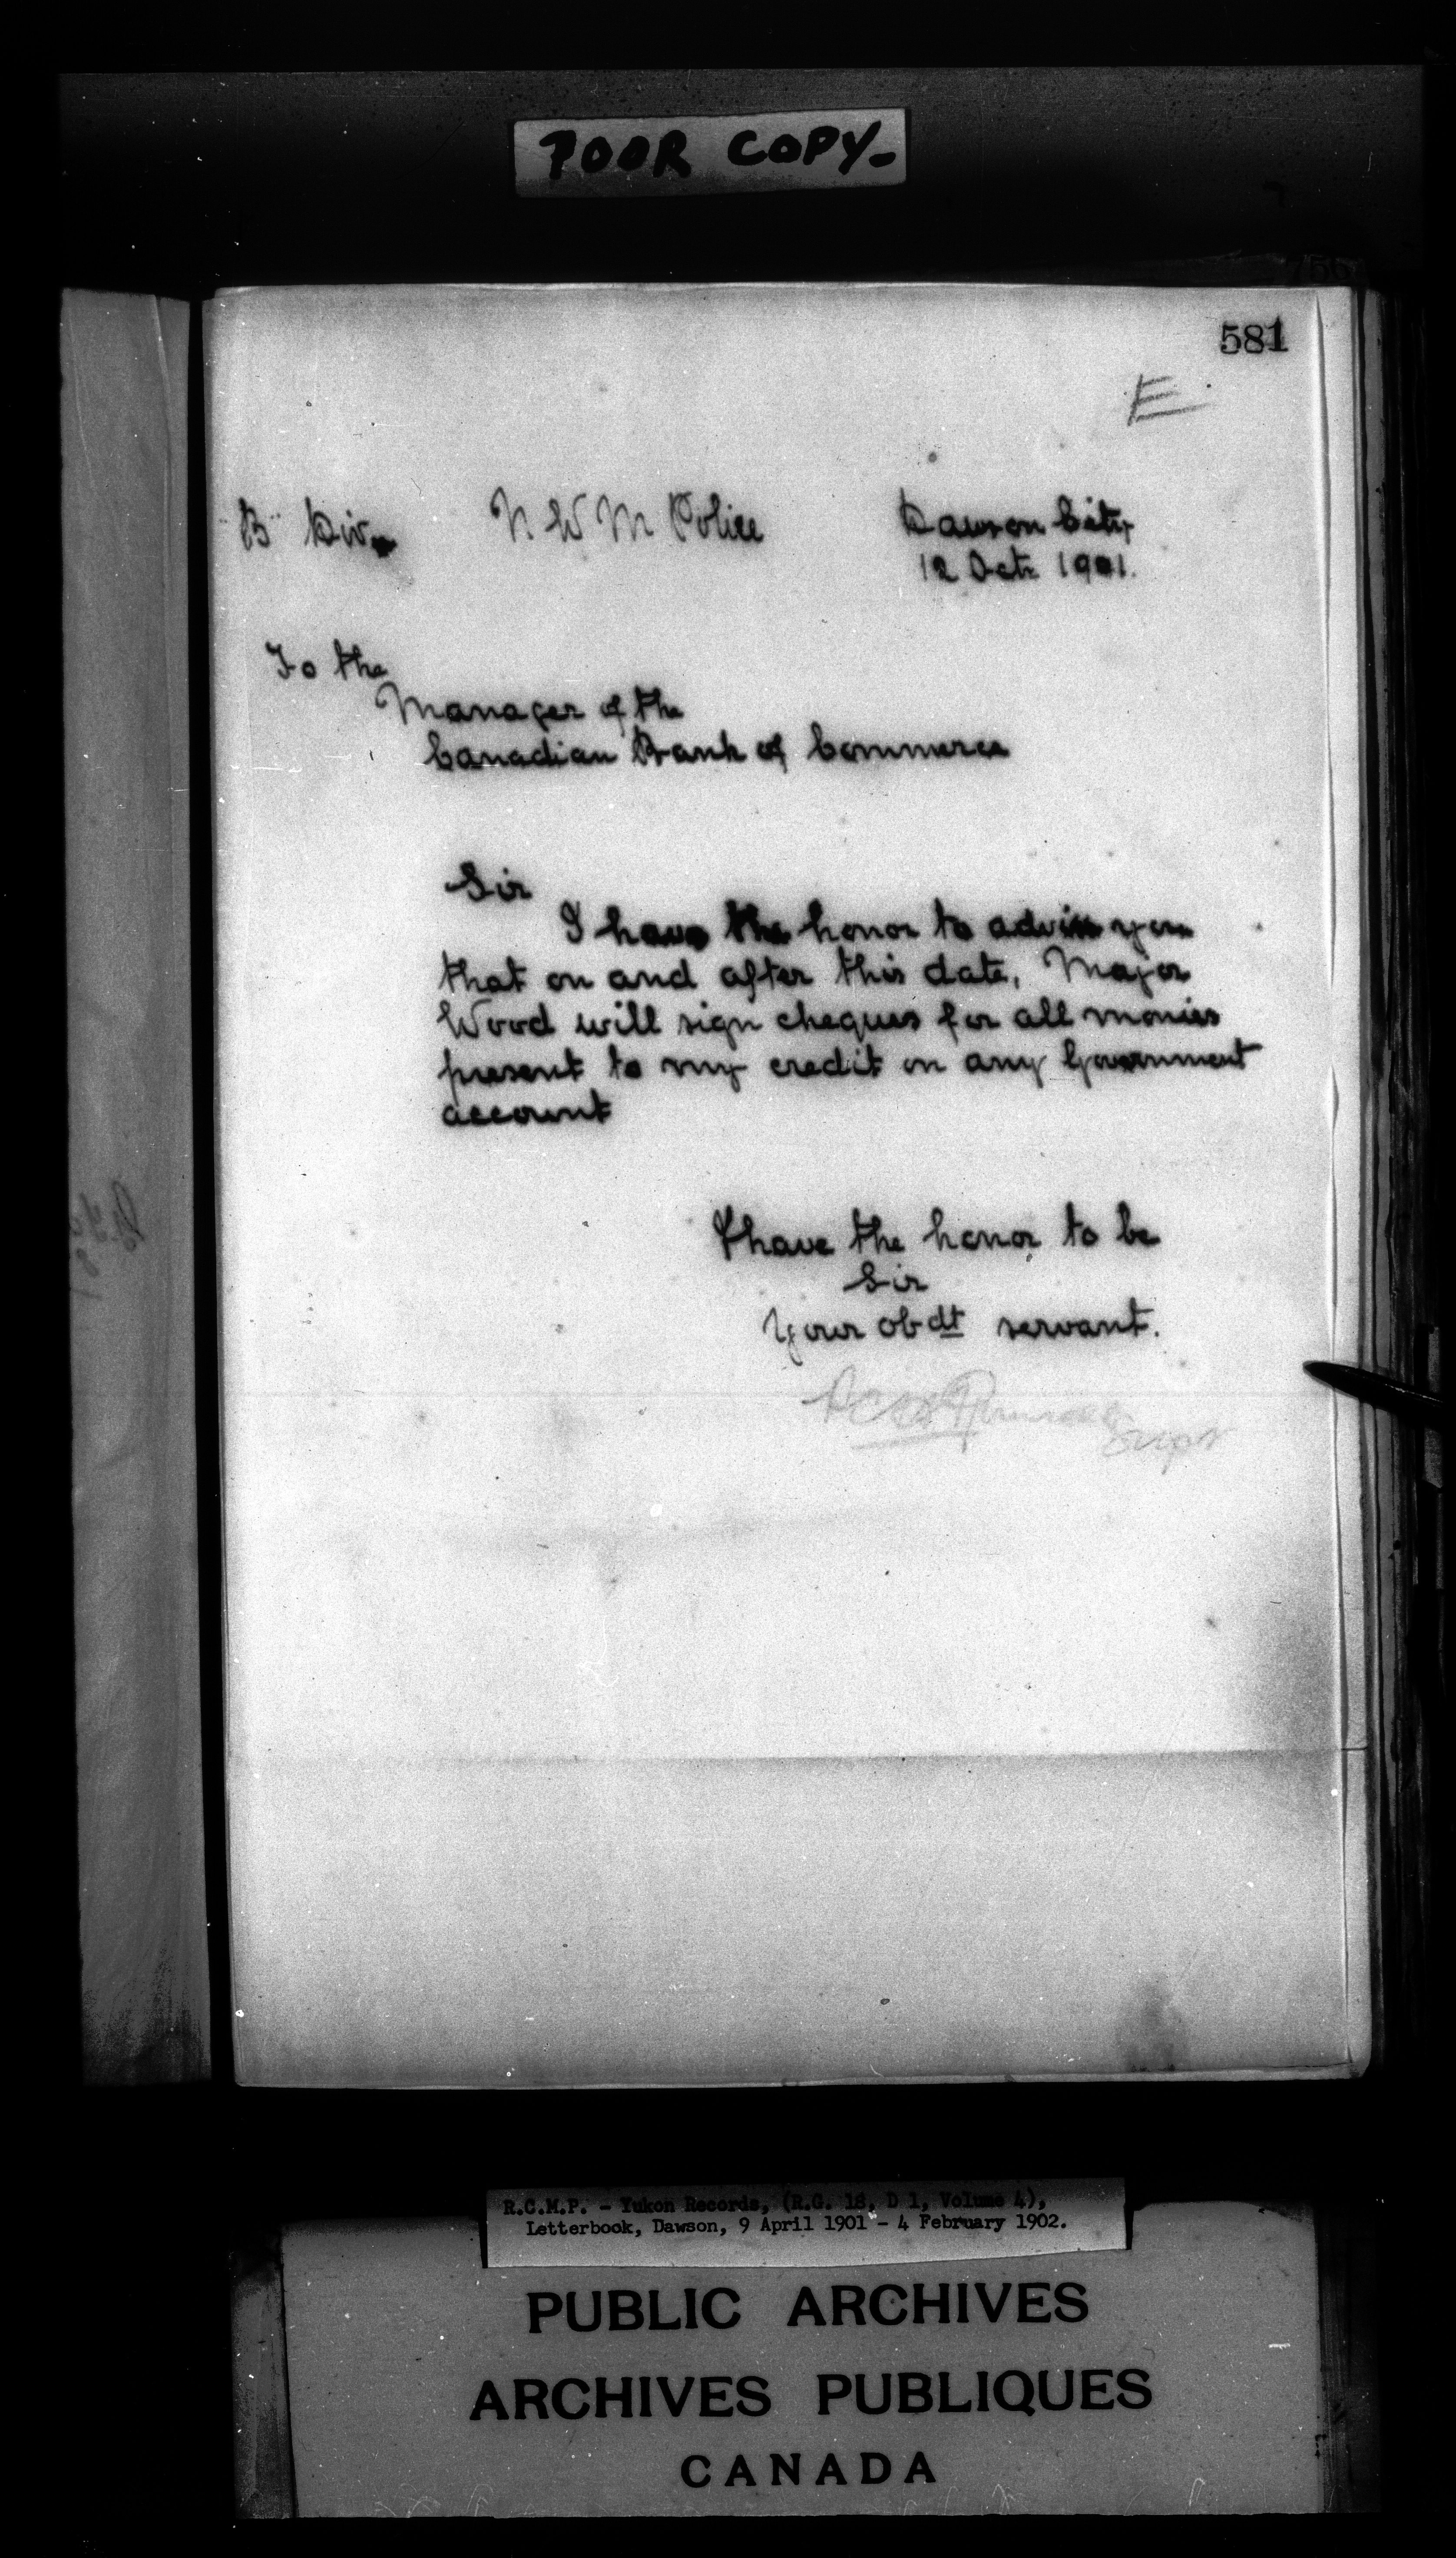 POOR COPY-
756
581
E
"B" Div. N. W. M Police Dawson City
12 Octr 1901.
To the
Manager of the
Canadian Bank of Commerce
Sir
I have the honor to advise you
that on and after this date, Major
Wood will sign cheques for all monies
present to my credit on any Government
account
I have the honor to be
Sir
Your obdt servant.
Supt
R.C.M.P. - Yukon Records, (R.G. 18, D 1, Volume 4),
Letterbook, Dawson, 9 April 1901 - 4 February 1902.
PUBLIC ARCHIVES
ARCHIVES PUBLIQUES
CANADA